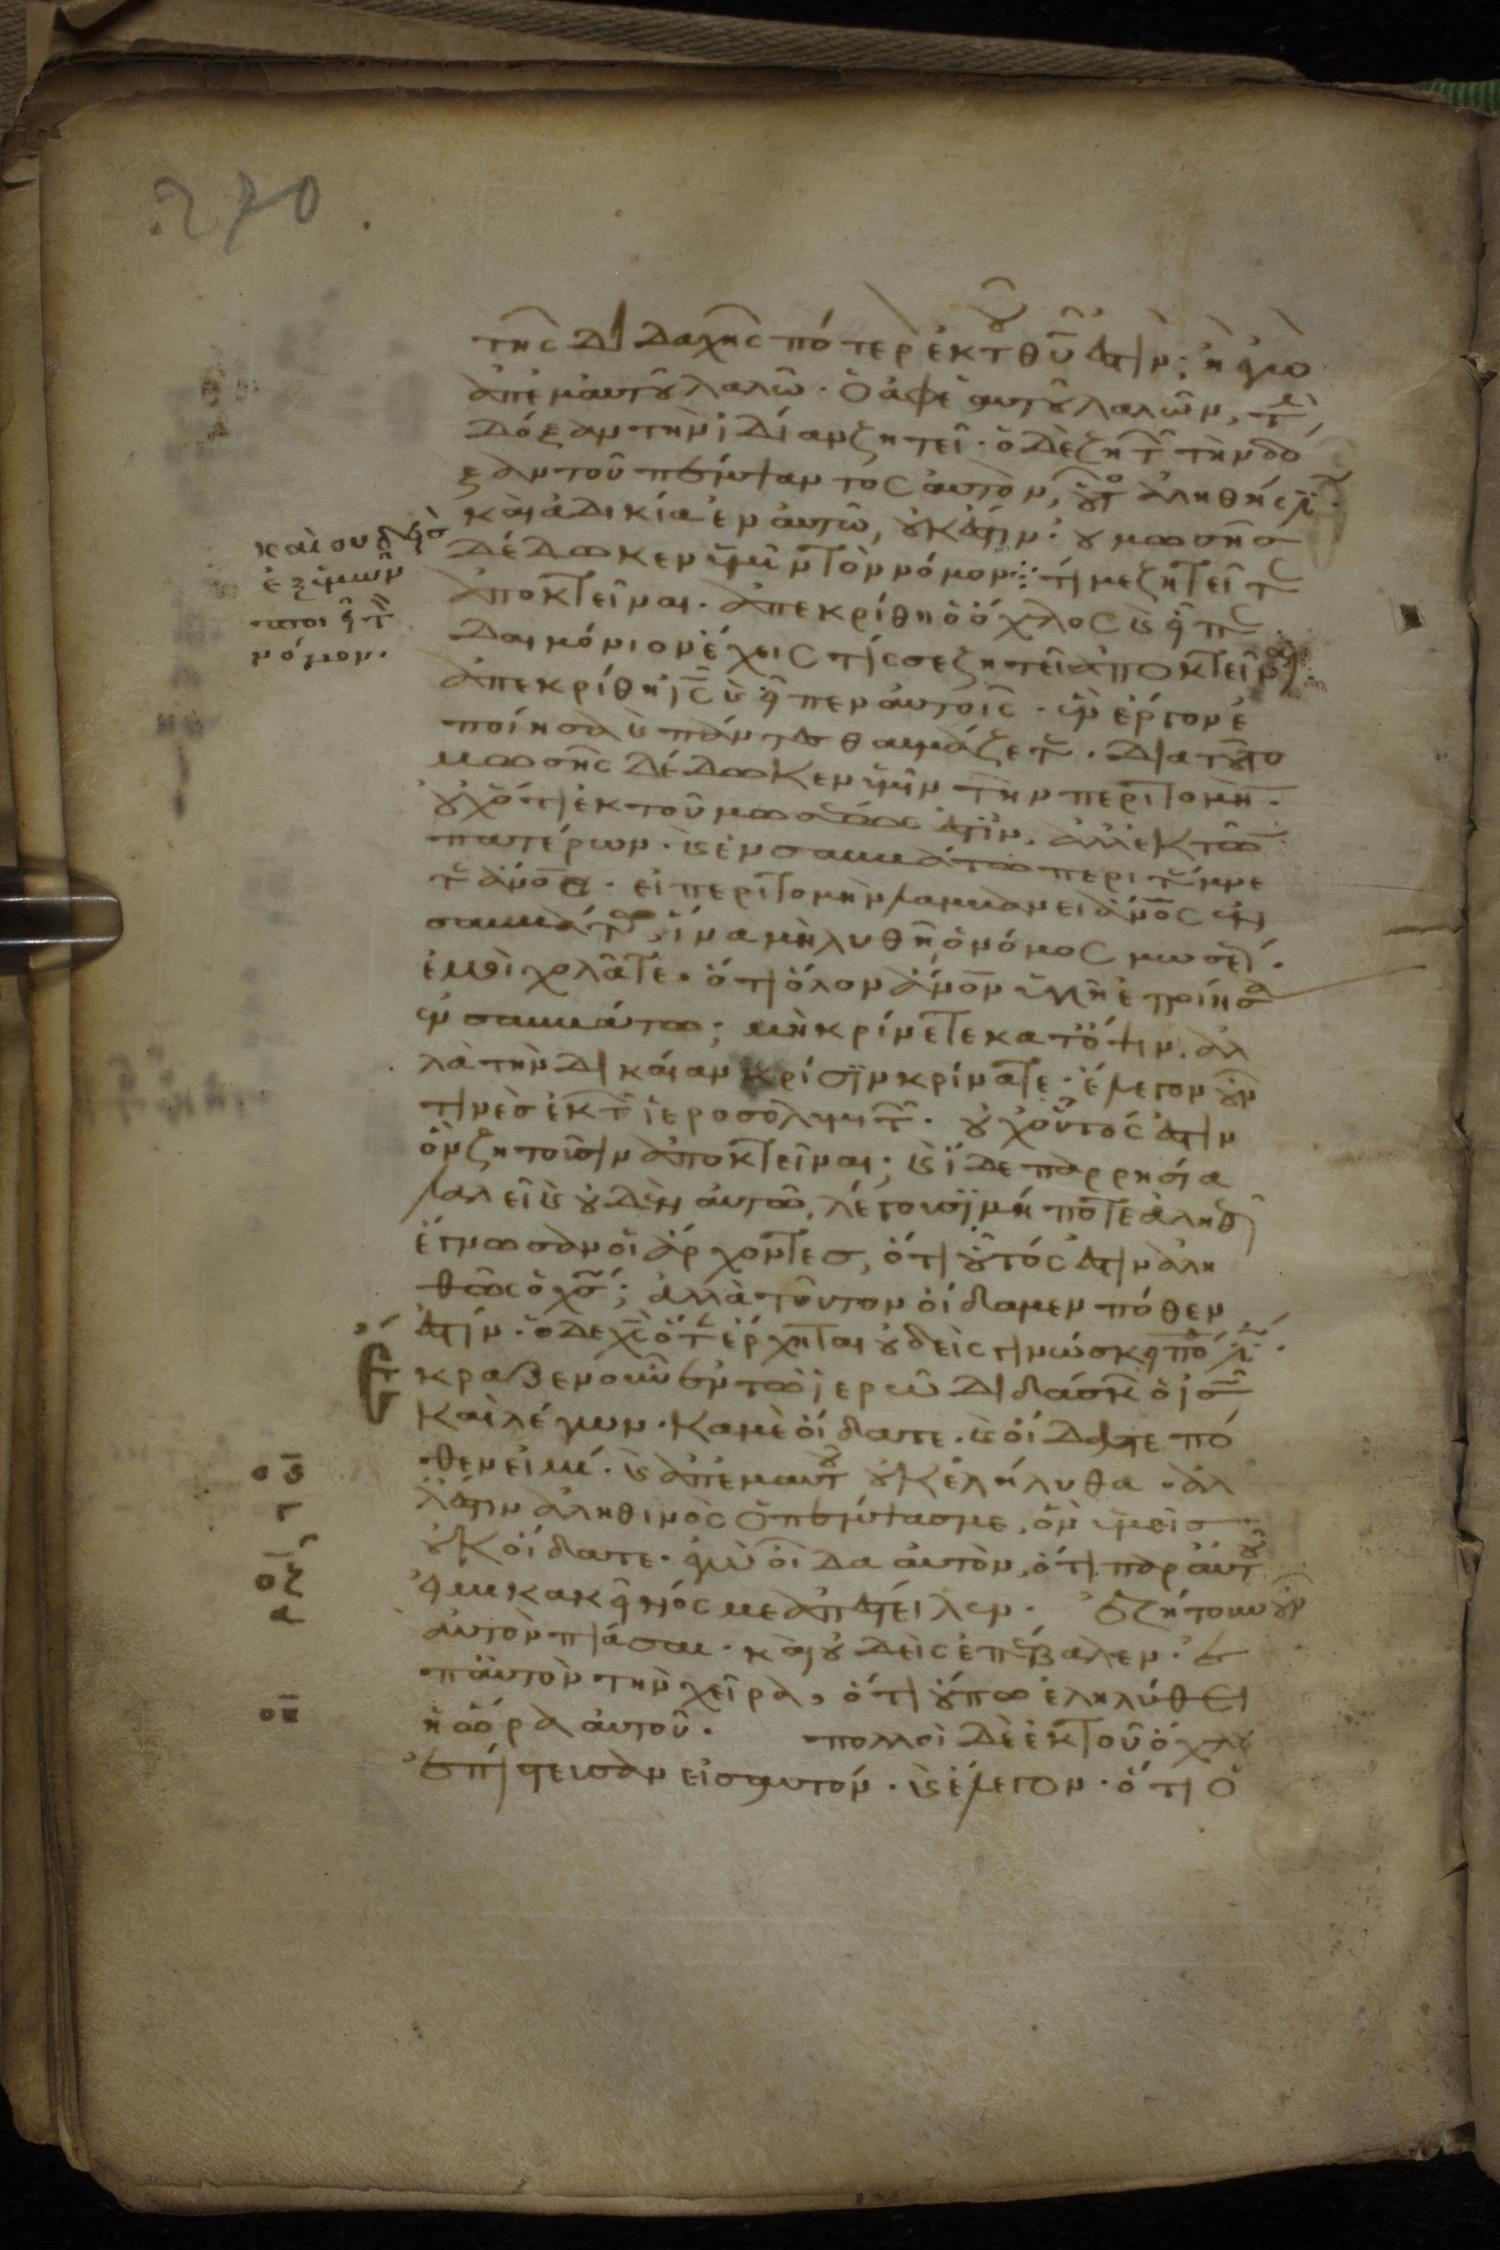 270
τῆς διδαχῆς πότερ ἐκ τ θῡ ἐστιν· ἢ ἐγὼ
ἀπ ἐμαυτοῦ λαλῶ. ὁ ἀφ ἑαυτοῦ λαλῶν, τ
δόξαν τὴν ἰδίαν ζητεῖ. ὁ δὲ ζητ τὴν δό
ξαν τοῦ πέμψαντος αὐτὸν, οὗτ ἀληθής ἐστι.
καὶ ἀδικία ἐν αὐτῶ, οὐκ ἔστιν. οὐ μωσῆς
δέδωκεν ὑμῖν τὸν νόμον· τί με ζητεῖτ
καὶ οὐδεὶς
ἐξ ὑμῶν
ποιεῖ τ
νόμον.
ἀποκτεῖναι. ἀπεκρίθη ὁ ὄχλος καὶ εἶπ
δαιμόνιον ἔχεις τίς σε ζητεῖ ἀποκτεῖναι·
ἀπεκρίθη ις καὶ εἶπεν αὐτοῖς. ἓν ἔργον ἐ
ποίησα καὶ πάντες θαυμάζετε. διατοῦτο
μωσῆς δέδωκεν ὑμῖν τὴν περιτομὴ.
οὐχ ὅτι ἐκ τοῦ μωσέως ἐστὶν. ἀλλ ἐκ τῶ
πατέρων. καὶ ἐν σαββάτω περιτέμνε
τε ἄνο̄ν. εἰ περιτομὴν λαμβάνει ἄνο̄ς ἐν
σαββάτω, ἵνα μὴ λυθῆ ὁ νόμος μωσέ.
ἐμοὶ χολᾶτε. ὅτι ὅλον ἄνο̄ν ὑγιῆ ἐποίησα
ἐν σαββάτω; μὴ κρίνετε κατ ὄψιν. ἀλ
λὰ τὴν δικαίαν κρίσιν κρίνατε. ἔλεγον οὖν
τινὲς ἐκ τ ἱεροσολυμιτ. οὐχ οὗτός ἐστιν
ὃν ζητοῦσιν ἀποκτεῖναι; καὶ ἴδε παρρησία
λαλεῖ καὶ οὐδὲν αὐτῶ λέγουσι μή ποτε ἀληθ
ἔγνωσαν οἱ ἄρχοντες, ὅτι οὗτός ἐστιν ἀλη
θῶς ὁ χς; ἀλλὰ τοῦτον οἴδαμεν πόθεν
ἐστίν. ὁ δὲ χς ὅτ ἔρχηται οὐδεὶς γινώσκει πό ἐστι.
Ε κραξεν οὖν ἐν τῶ ἱερῶ διδάσκ ὁ ις
καὶ λέγων. καμὲ οἴδατε. καὶ οἴδατε πό
θεν εἰμί. καὶ ἀπ ἐμαυτοῦ οὐκ ἐλήλυθα. ἀλ
λ ἔστιν ἀληθινὸς ὁ πέμψας με, ὃν ὑμεῖς
οὐκ οἴδατε. ἐγὼ οἶδα αὐτὸν, ὅτι παρ αὐτοῦ
εἰμι κακεῖνός με ἀπέστειλεν. ἐζήτουν οὖν
αὐτὸν πιάσαι. καὶ οὐδεὶς ἐπέβαλεν. ἐ
π αὐτὸν τὴν χεῖρα, ὅτι οὔπω ἐληλύθει
ἡ ὥρα αὐτοῦ. πολλοὶ δὲ ἐκ τοῦ ὄχλου
ἐπίστευσαν εἰς αὐτόν. καὶ ἔλεγον. ὅτι ὁ